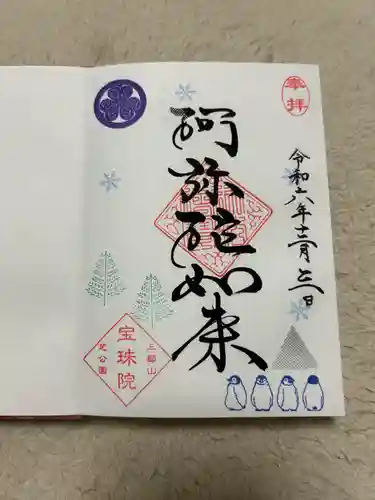 奉拝
令和六年十二月二十一日
阿弥陀如来
三縁山
宝珠院
芝公園